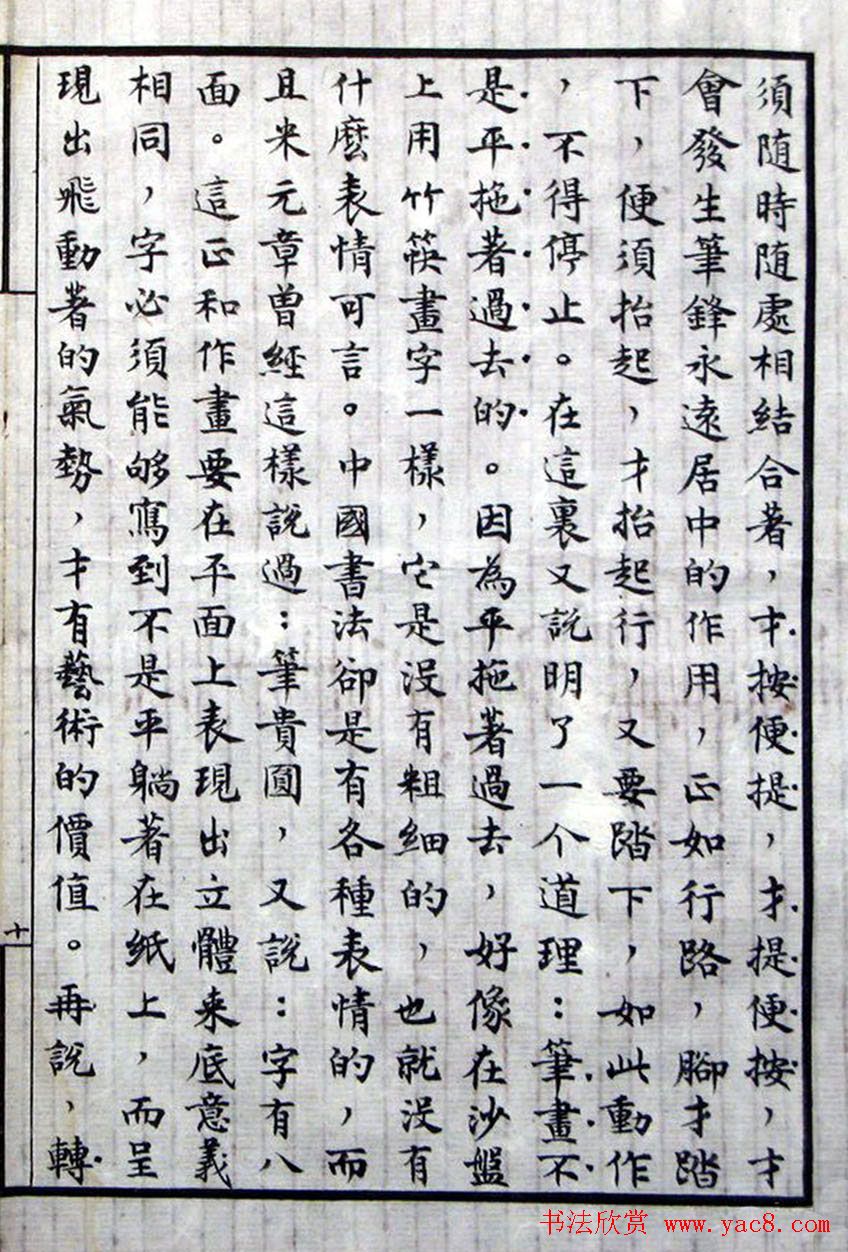 須隨時隨處相結合著，才按便提，才提便按，才
會發生筆鋒永遠居中的作用，正如行路，腳才踏
下，便須抬起，才抬起行，又要踏下，如此動作
，不得停止。在這裏又說明了一个道理：筆畫不
是平拖著過去的。因為平拖著過去，好像在沙盤
上用竹筷畫字一樣，它是沒有粗细的，也就没有
什麼表情可言。中國書法卻是有各種表情的，而
且米元章曾經這樣說過：筆貴圓，又說：字有八
面。這正和作畫要在平面上表現出立體来底意義
相同，字必須能够寫到不是平躺著在纸上，而呈
現出飛動著的氣勢，才有藝術的價值。再說，轉
十
书法欣赏 www.yac8.com